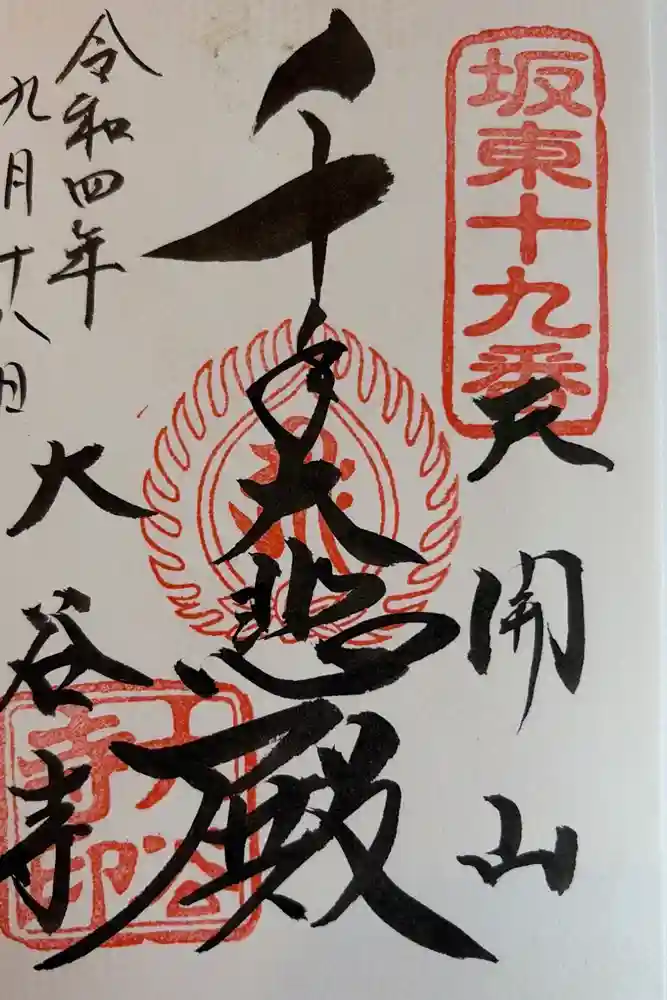 坂東十九番
天開山
千手大悲殿
大谷寺
大谷寺印
令和四年
九月十八日